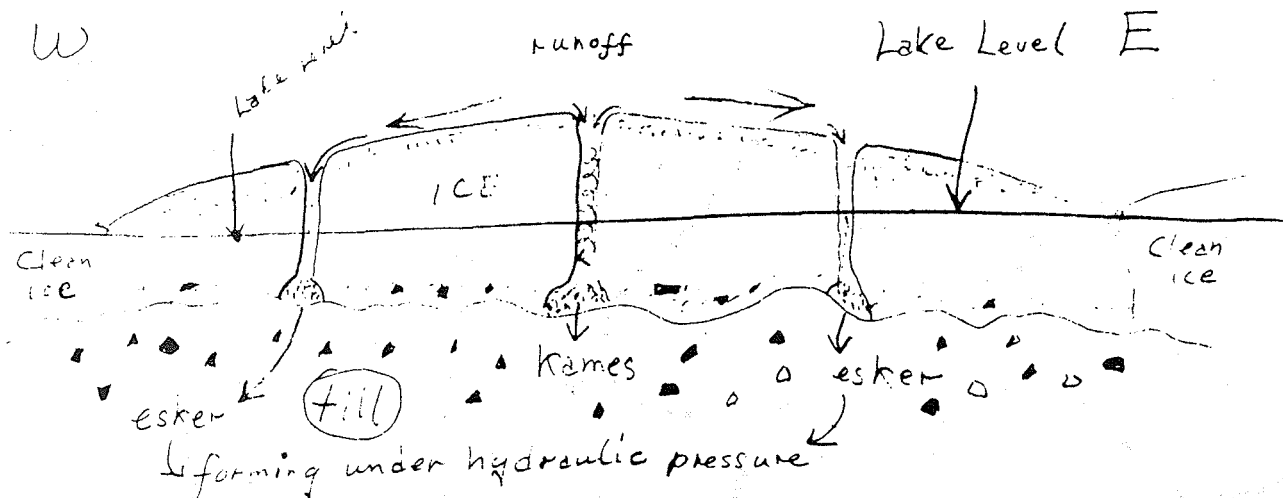 W
Lake level
runoff
Lake Level E
ICE
Clean
ice
Clean
ice
kames
esker
esker
till
forming under hydraulic pressure